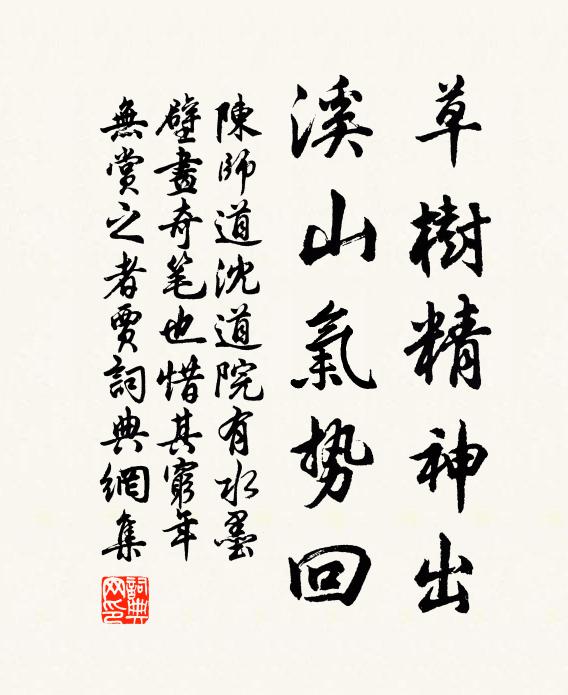 草樹精神出
溪山氣势回
陳師道沈道院有水墨
壁畫奇笔也惜其窮年
無賞之者賈詞典網集
詞典网印